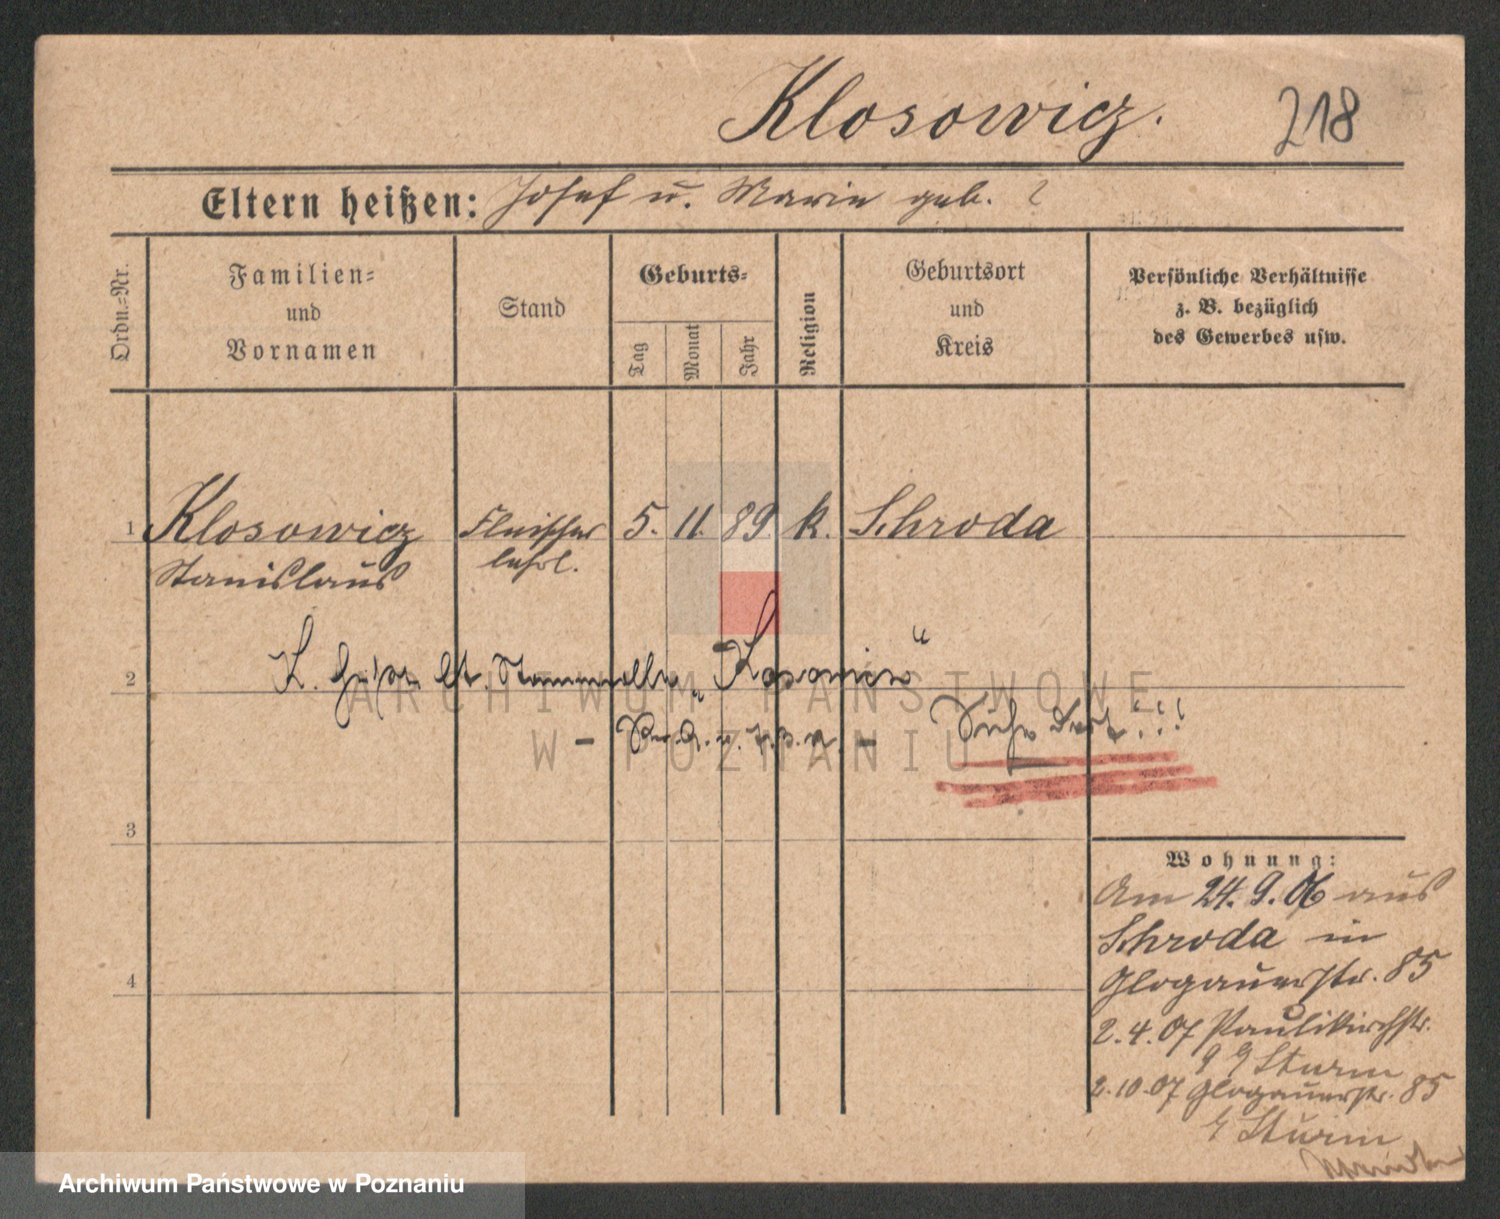 Klosowicz.
218
Eltern heißen: Josef u. Marie geb. ?
Ordn.-Nr.
Familien-
und
Vornamen
Stand
Geburts-
Tag
Monat
Jahr
Religion
Geburtsort
und
Kreis
Persönliche Verhältnisse
z. B. bezüglich
des Gewerbes usw.
1 Klosowicz Fleischer 5. 11. 89. k. Schroda
Stanislaus lehrl.
K. lt. Stammrolle „Kosowicz“
2
ARCHIWUM PAŃSTWOWE
Siehe dort!!!
W POZNANIU
3
4
Wohnung:
Am 24. 9. 06 aus
Schroda in
Glogauerstr. 85
2. 4. 07 Paulikirchstr.
9 Sturm
2.10.07 Glogauerstr. 85
Sturm
Archiwum Państwowe w Poznaniu